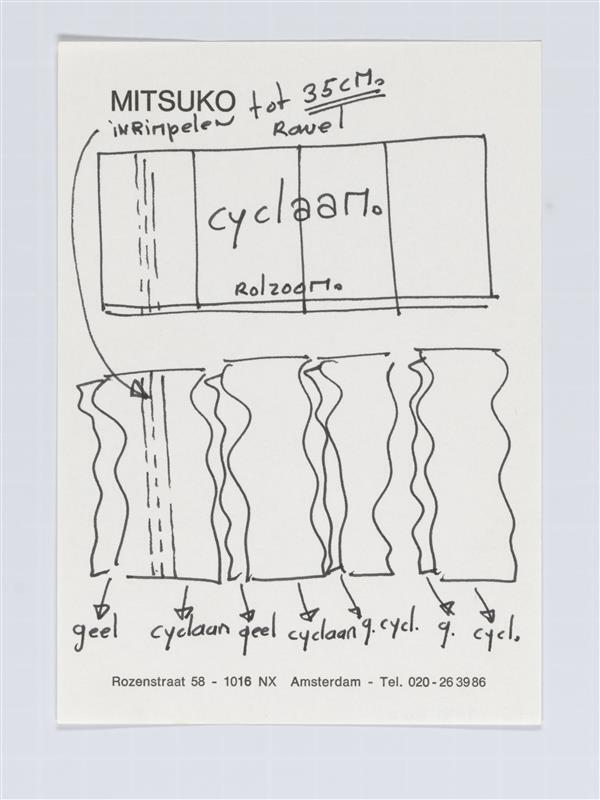 MITSUKO tot 35CM.
inRimpelen Ravel
cyclaam.
Rolzoom.
geel cyclaam geel cyclaam g. cycl. g. cycl.
Rozenstraat 58 - 1016 NX Amsterdam - Tel. 020-263986